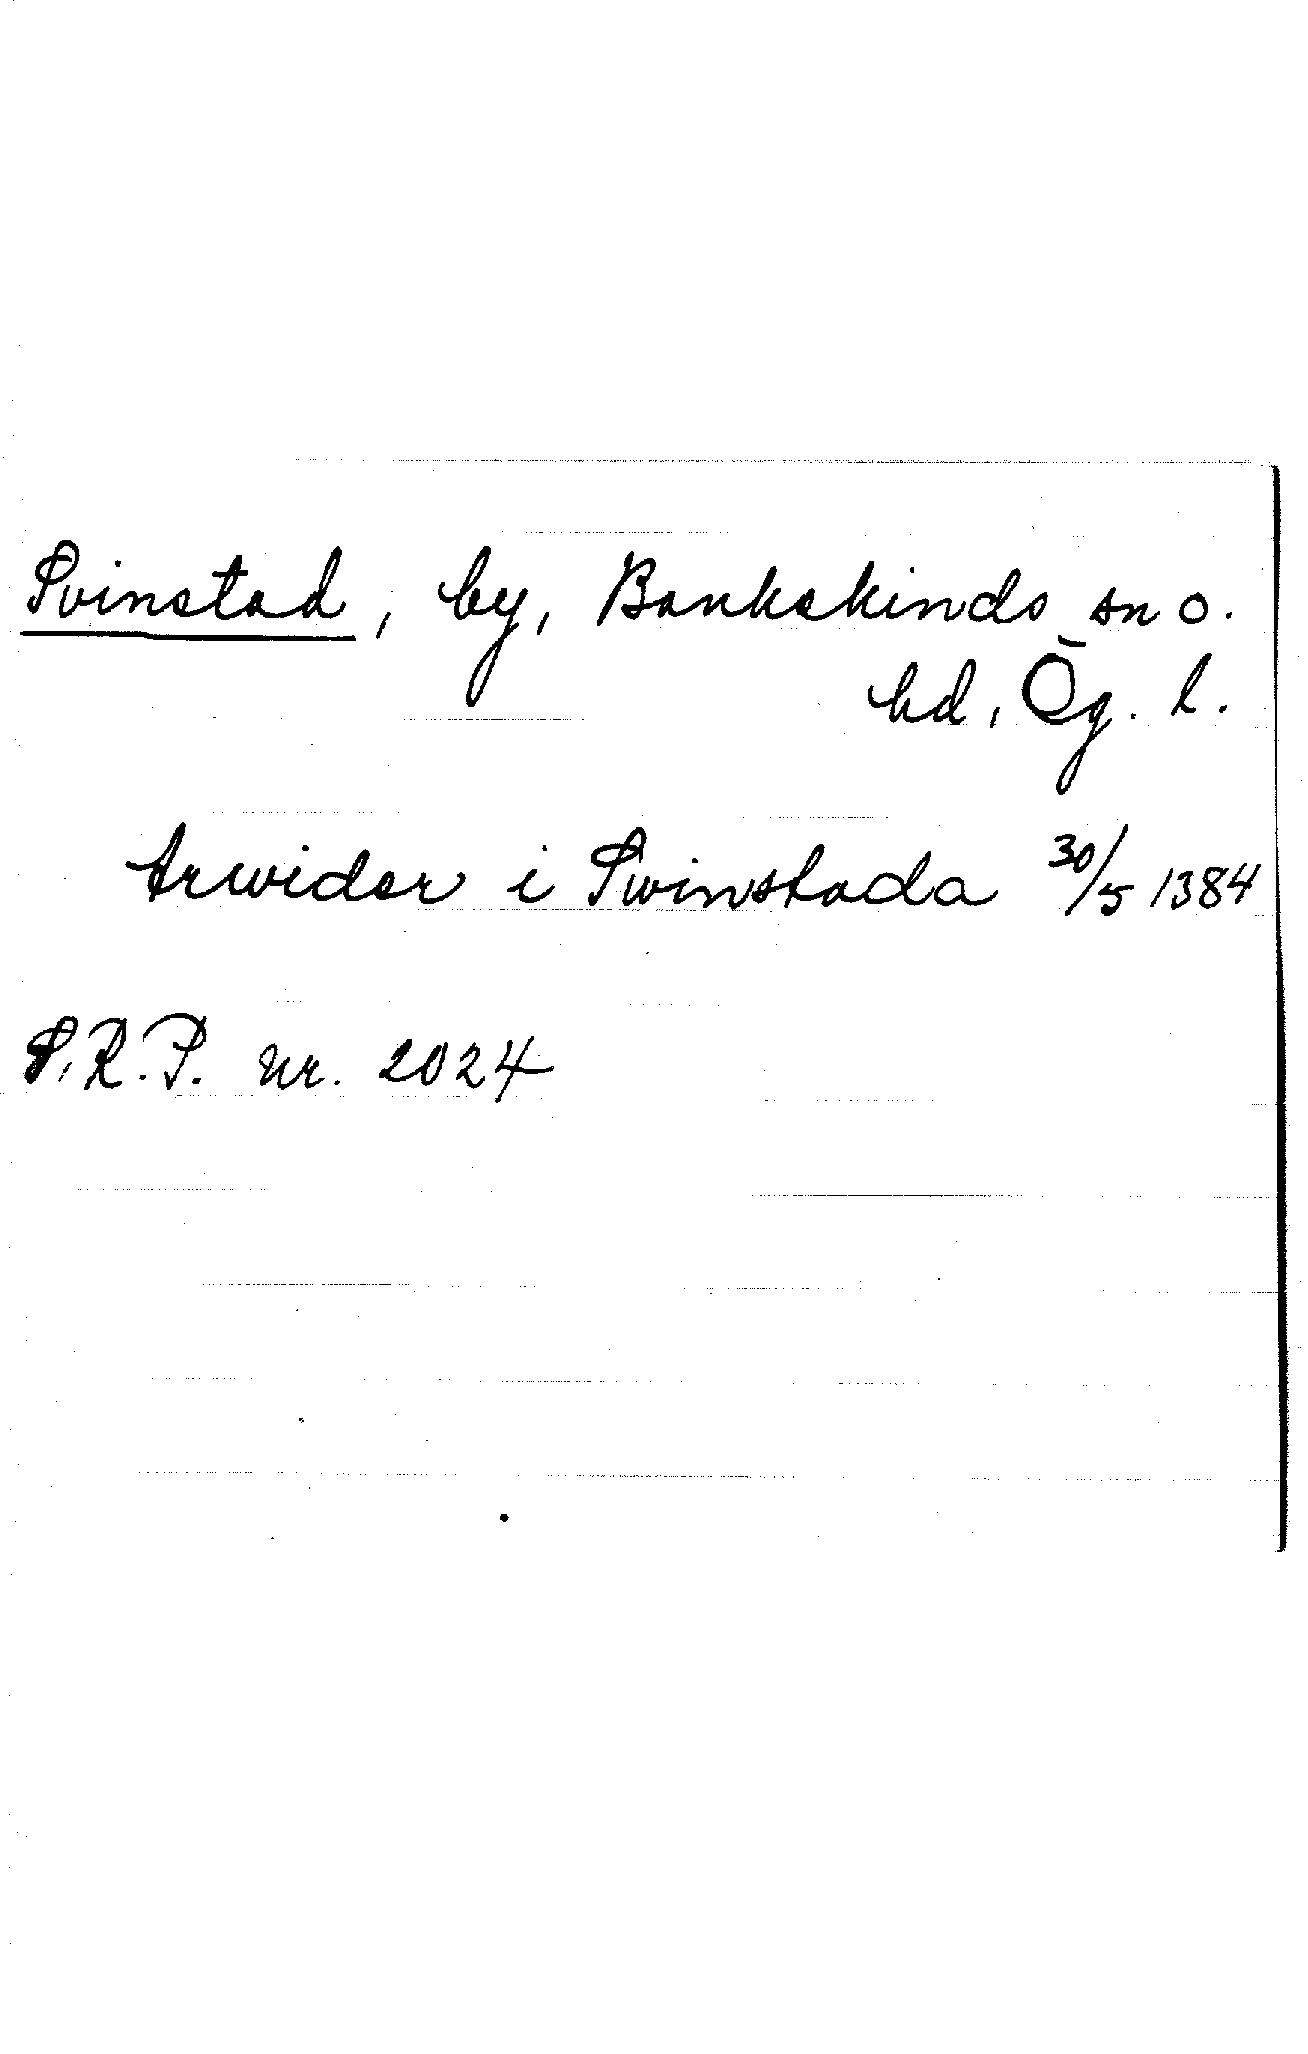 Svinstad, by, Bankekinds sn o.
hd, Ög. l.
Arwider i Swinstada 30/5 1384
S.R.P. nr. 2024